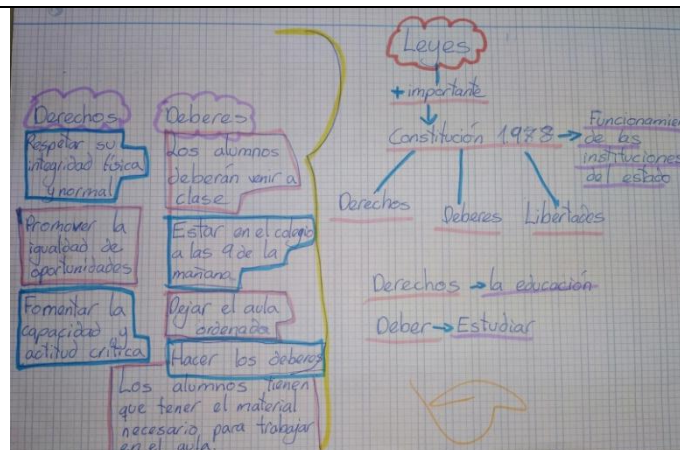 Derechos
Respetar su
integridad física
y normal
Promover la
igualdad de
oportunidades
Fomentar la
capacidad y
actitud crítica
Deberes
Los alumnos
deberán venir a
clase
Estar en el colegio
a las 9 de la
mañana
Dejar el aula
ordenada
Hacer los deberes
Los alumnos tienen
que tener el material
necesario para trabajar
en el aula.
Leyes
+ importante
Constitución 1978 →
Funcionamie
de las
instituciones
del estado
Derechos
Deberes
Libertades
Derechos → la educación
Deber → Estudiar